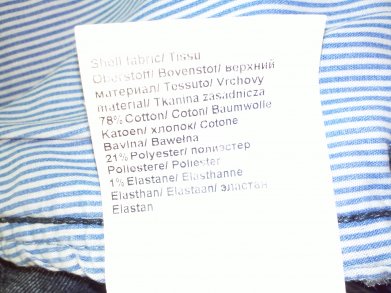 Shell fabric/ Tissu
Oberstoff/ Bovenstof/ верхний
материал/ Tessuto/ Vrchovy
material/ Tkanina zasadnicza
78% Cotton/ Coton/ Baumwolle
Katoen/ хлопок/ Cotone
Bavlna/ Bawełna
21% Polyester/ полиэстер
Poliestere/ Poliester
1% Elastane/ Elasthanne
Elasthan/ Elastaan/ эластан
Elastan